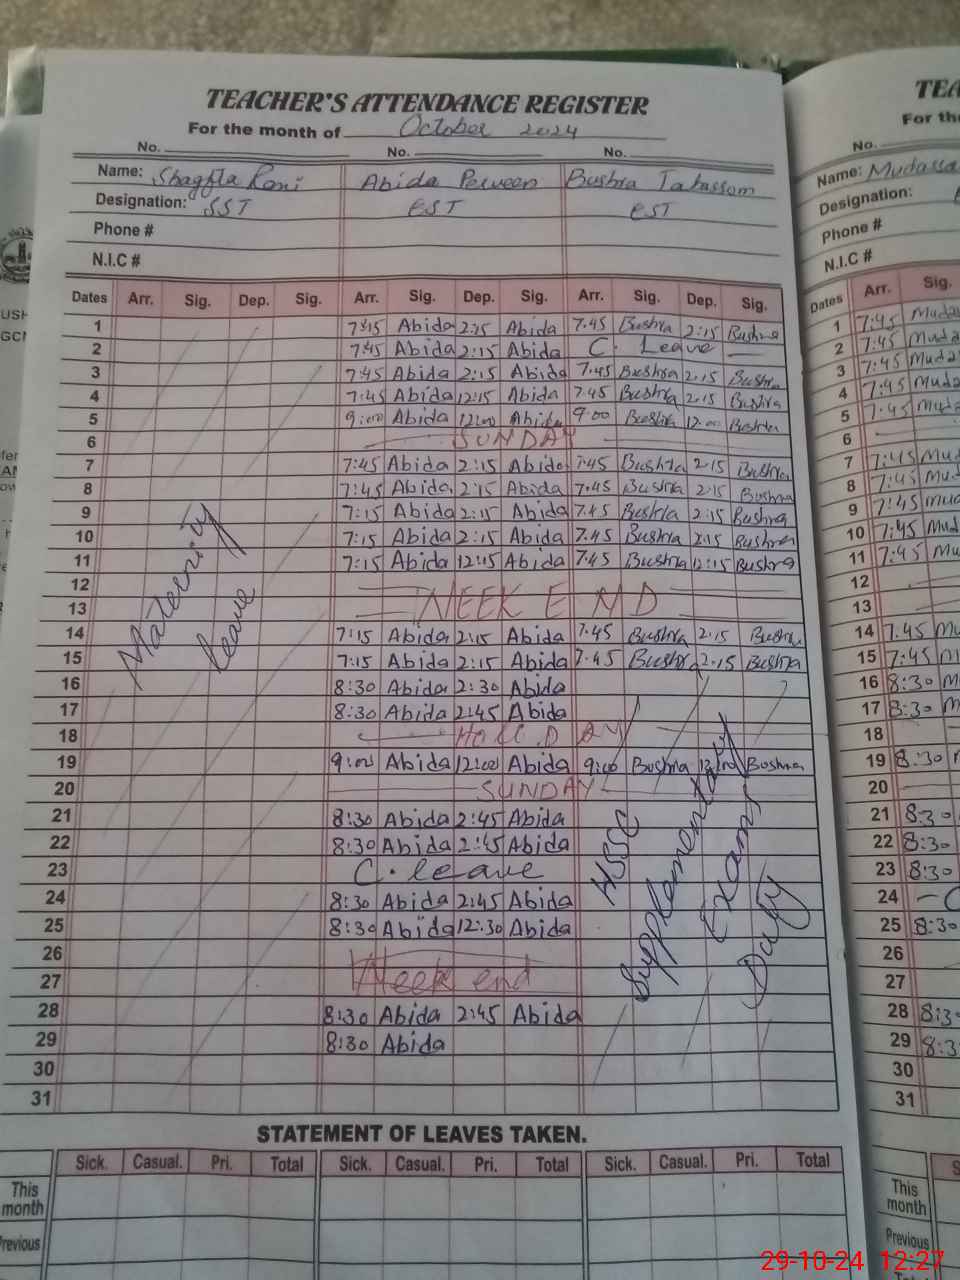 TEACHER'S ATTENDANCE REGISTER
For the month of October 2024
No. No. No.
Name: Shagfta Rani Abida Perveen Bushra Tabassom
Designation: SST EST EST
Phone #
N.I.C #
Dates Arr. Sig. Dep. Sig. Arr. Sig. Dep. Sig. Arr. Sig. Dep. Sig.
1 7:15 Abida 2:15 Abida 7.45 Bushra 2:15 Bushra
2 7:45 Abida 2:15 Abida C. Leave
3 7:45 Abida 2:15 Abida 7.45 Bushra 2.15 Bushra
4 7:45 Abida 12:15 Abida 7.45 Bushra 2.15 Bushra
5 9:00 Abida 12:00 Abida 9.00 Bushra 12.00 Bushra
6 SUNDAY
7 7:45 Abida 2:15 Abida 7.45 Bushra 2.15 Bushra
8 7:45 Abida 2:15 Abida 7.45 Bushra 2.15 Bushra
9 7:15 Abida 2:15 Abida 7.45 Bushra 2:15 Bushra
10 7:15 Abida 2:15 Abida 7.45 Bushra 2:15 Bushra
11 7:15 Abida 12:15 Abida 7.45 Bushra 12:15 Bushra
12
13 WEEK END
14 7:15 Abida 2:15 Abida 7.45 Bushra 2.15 Bushra
15 7:15 Abida 2:15 Abida 7.45 Bushra 2.15 Bushra
16 8:30 Abida 2:30 Abida
17 8:30 Abida 2:45 Abida
18
19 9:00 Abida 12:00 Abida 9:00 Bushra Boshra
20 SUNDAY
21 8:30 Abida 2:45 Abida
22 8:30 Abida 2:45 Abida
23 C. leave
24 8:30 Abida 2:45 Abida
25 8:30 Abida 12:30 Abida
26
27 Week end
28 8:30 Abida 2:45 Abida
29 8:30 Abida
30
31
Maternity
leave
HSSC
Supplementary
Exams
Duty
STATEMENT OF LEAVES TAKEN.
Sick. Casual. Pri. Total Sick. Casual. Pri. Total Sick. Casual. Pri. Total
This month
Previous
TEA
For th
No.
Name: Mudassa
Designation:
Phone #
N.I.C #
Dates Arr. Sig.
1 7:45 Muda
2 7:45 Muda
3 7:45 Muda
4 7:45 Muda
5 7.45 Muda
6
7 7:45 Mud
8 7:45 Mud
9 7:45 Mud
10 7:45 Mud
11 7:45 Mu
12
13
14 7:45 Mu
15 7:45 M
16 8:30 M
17 8:30 M
18
19 8:30
20
21 8:30
22 8:30
23 8:30
24 C
25 8:30
26
27
28 8:3
29 8:3
30
31
This month
Previous
29-10-24 12:27